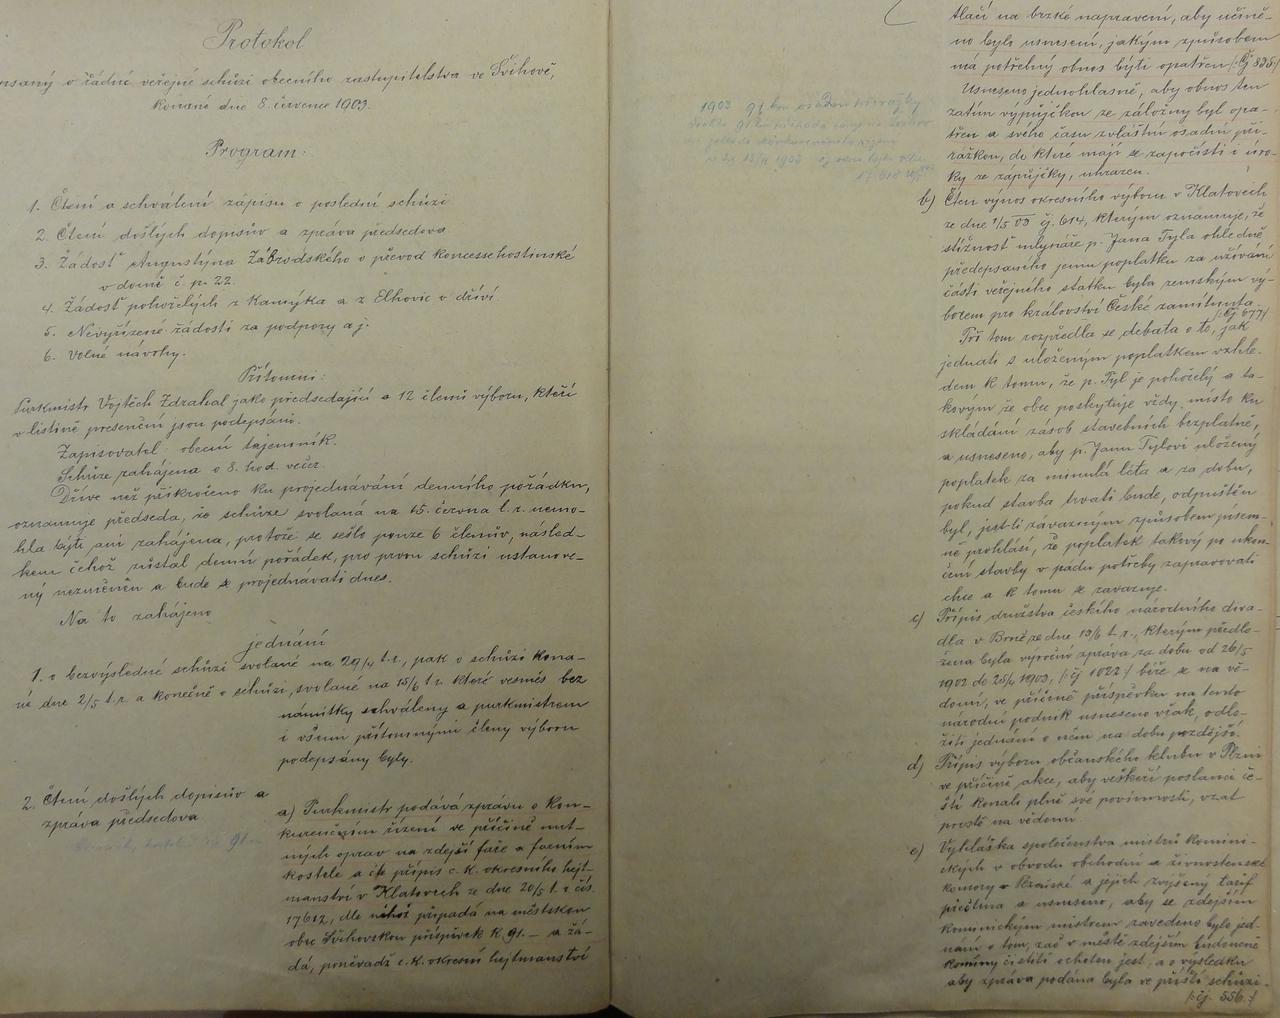 Protokol
psaný o řádné veřejné schůzi obecního zastupitelstva ve Švihově,
konané dne 8. července 1903.
Program:
1. Čtení a schválení zápisu o poslední schůzi
2. Čtení došlých dopisův a zpráva předsedova
3. Žádosť Augustýna Zábrodského o převod koncesse hostinské
v domě č. p. 22.
4. Žádosť pohořelých z Kamýka a z Elhovic o dříví
5. Nevyřízené žádosti za podpory a j.
6. Volné návrhy.
Přítomni:
Purkmistr Vojtěch Zdrahal jako předsedající a 12 členů výboru, kteří
v listině presenční jsou podepsáni.
Zapisovatel: obecní tajemník.
Schůze zahájena o 8. hod. večer.
Dříve než přikročeno ku projednávání denního pořádku,
oznamuje předseda, že schůze svolaná na 15. června t. r. nemo-
hla býti ani zahájena, protože se sešlo pouze 6 členův, násled-
kem čehož zůstal denní pořádek, pro první schůzi ustanove-
ný nezměněn a bude se projednávati dnes.
Na to zahájeno
jednání
1. o bezvýsledné schůzi svolané na 29/4 t. r., pak o schůzi kona-
né dne 2/5 t. r. a konečně o schůzi, svolané na 15/6 t. r. které vesměs bez
námitky schváleny a purkmistrem
i všemi přítomnými členy výboru
podepsány byly.
2. Čtení došlých dopisův a
zpráva předsedova
91.-
a) Purkmistr podává zprávu o kon-
kurenčním řízení ve příčině nut-
ných oprav na zdejší faře a farním
kostele a čte přípis c. k. okresního hejt-
manství v Klatovech ze dne 20/5 t. r. čís.
17612, dle něhož připadá na městskou
obec Švihovskou příspěvek K 91.— a žá-
dá, poněvadž c. k. okresní hejtmanství
1903 91
tlačí na brzké napravení, aby učině-
no bylo usnesení, jakým způsobem
má potřebný obnos býti opatřen /: Čj 835 :/
Usneseno jednohlasně, aby obnos ten
zatím výpůjčkou ze záložny byl opa-
třen a svého času zvláštní osadní při-
rážkou, do které mají se započísti i úro-
ky ze zápůjčky, uhrazen.
b) Čten výnos okresního výboru v Klatovech
ze dne 1/5 03 čj. 614, kterým oznamuje, že
stížnosť mlynáře p. Jana Tyla ohledně
předepsaného jemu poplatku za užívání
části veřejného statku byla zemským vý-
borem pro království České zamítnuta.
/: Čj 677 :/
Při tom rozpředla se debata o to, jak
jednati s uloženým poplatkem vzhle-
dem k tomu, že p. Tyl je pohořelý a ta-
kovým že obec poskytuje vždy místo ku
skládání zásob stavebních bezplatně,
a usneseno, aby p. Janu Tylovi uložený
poplatek za minulá léta a za dobu,
pokud stavba trvati bude, odpuštěn
byl, jest-li závazným způsobem písem-
ně prohlásí, že poplatek takový po ukon-
čení stavby v pádu potřeby zapravovati
chce a k tomu se zavazuje.
c) Přípis družstva českého národního diva-
dla v Brně ze dne 13/6 t. r., kterým předlo-
žena byla výroční zpráva za dobu od 26/5
1902 do 25/4 1903, /: čj 1022 :/ béře se na vě-
domí, ve příčině příspěvku na tento
národní podnik usneseno však, odlo-
žiti jednání o něm na dobu pozdější.
d) Přípis výboru občanského klubu v Plzni
ve příčině akce, aby veškeří poslanci če-
ští konali plně své povinnosti, vzat
prostě na vědomí.
e) Vyhláška společenstva mistrů komini-
ckých v obvodu obchodní a živnostenské
komory v Plzeňské a jejich zvýšený tarif
přečtena a usneseno, aby se zdejším
kominickým mistrem zavedeno bylo jed-
nání o tom, zač v městě zdejším budoucně
komíny čistiti ochoten jest, a o výsledku
aby zpráva podána byla ve příští schůzi.
/: čj. 556. :/